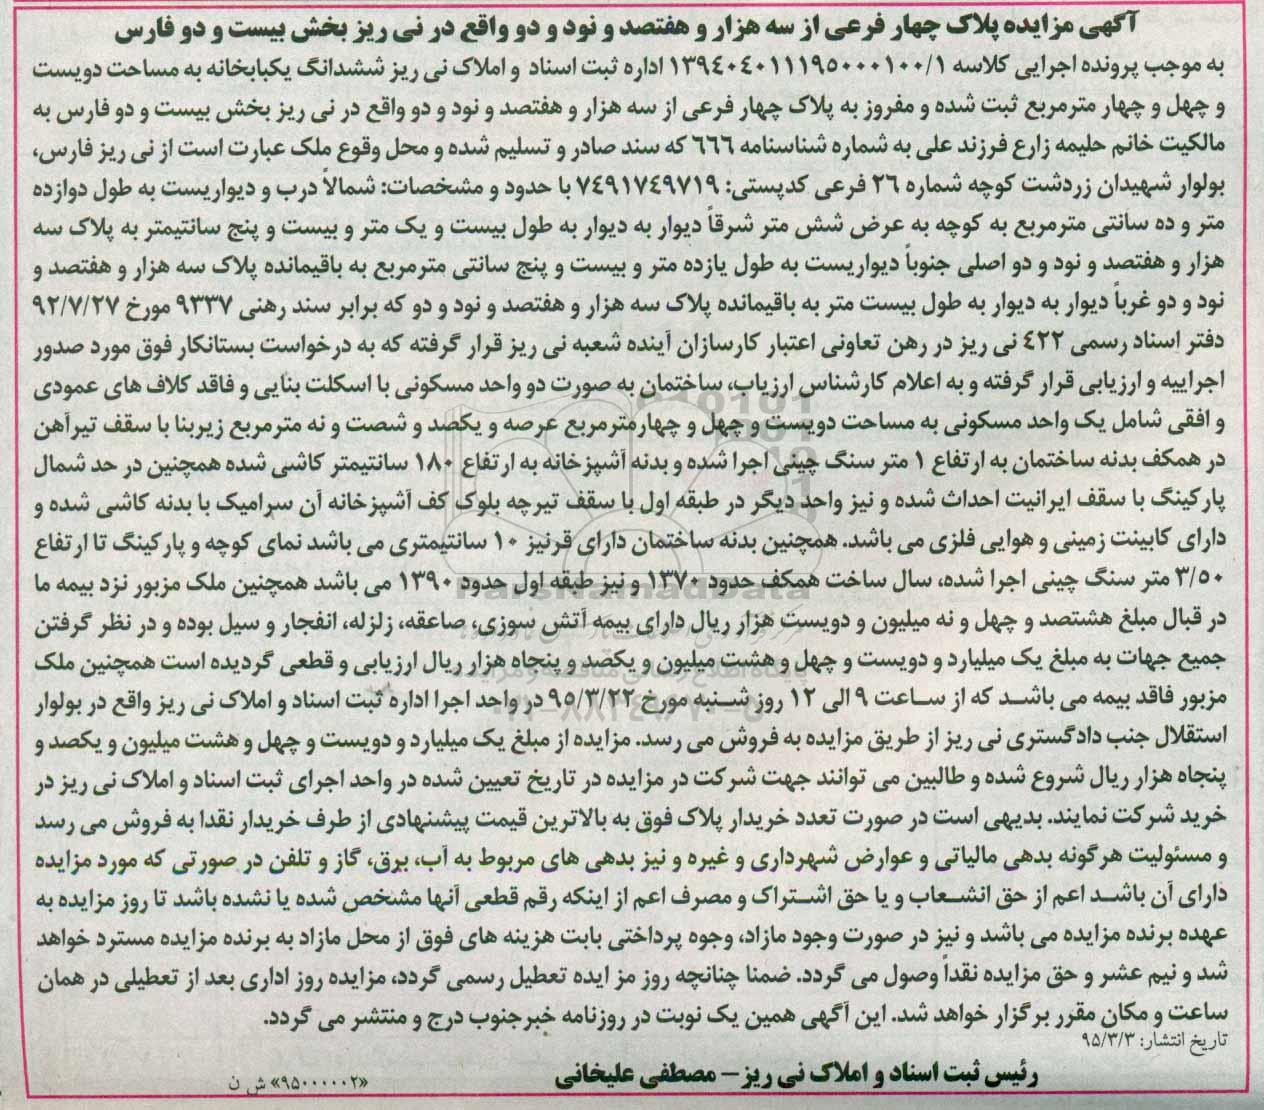 آگهی مزایده پلاک چهار فرعی از سه هزار و هفتصد و نود و دو واقع در نی ریز بخش بیست و دو فارس
به موجب پرونده اجرایی کلاسه ۱۳۹٤۰٤۰۱۱۱۹۵۰۰۰۱۰۰/۱ اداره ثبت اسناد و املاک نی ریز ششدانگ یکبابخانه به مساحت دویست
و چهل و چهار مترمربع ثبت شده و مفروز به پلاک چهار فرعی از سه هزار و هفتصد و نود و دو واقع در نی ریز بخش بیست و دو فارس به
مالکیت خانم حلیمه زارع فرزند علی به شماره شناسنامه ٦٦٦ که سند صادر و تسلیم شده و محل وقوع ملک عبارت است از نی ریز فارس،
بولوار شهیدان زردشت کوچه شماره ۲٦ فرعی کدپستی: ۷٤۹۱۷٤۹۷۱۹ با حدود و مشخصات: شمالاً درب و دیواریست به طول دوازده
متر و ده سانتی مترمربع به کوچه به عرض شش متر شرقاً دیوار به دیوار به طول بیست و یک متر و بیست و پنج سانتیمتر به پلاک سه
هزار و هفتصد و نود و دو اصلی جنوباً دیواریست به طول یازده متر و بیست و پنج سانتی مترمربع به باقیمانده پلاک سه هزار و هفتصد و
نود و دو غرباً دیوار به دیوار به طول بیست متر به باقیمانده پلاک سه هزار و هفتصد و نود و دو که برابر سند رهنی ۹۳۳۷ مورخ ۹۲/۷/۲۷
دفتر اسناد رسمی ٤۲۲ نی ریز در رهن تعاونی اعتبار کارسازان آینده شعبه نی ریز قرار گرفته که به درخواست بستانکار فوق مورد صدور
اجراییه و ارزیابی قرار گرفته و به اعلام کارشناس ارزیاب، ساختمان به صورت دو واحد مسکونی با اسکلت بنایی و فاقد کلاف های عمودی
و افقی شامل یک واحد مسکونی به مساحت دویست و چهل و چهارمترمربع عرصه و یکصد و شصت و نه مترمربع زیربنا با سقف تیرآهن
در همکف بدنه ساختمان به ارتفاع ۱ متر سنگ چینی اجرا شده و بدنه آشپزخانه به ارتفاع ۱۸۰ سانتیمتر کاشی شده همچنین در حد شمال
پارکینگ با سقف ایرانیت احداث شده و نیز واحد دیگر در طبقه اول با سقف تیرچه بلوک کف آشپزخانه آن سرامیک با بدنه کاشی شده و
دارای کابینت زمینی و هوایی فلزی می باشد. همچنین بدنه ساختمان دارای قرنیز ۱۰ سانتیمتری می باشد نمای کوچه و پارکینگ تا ارتفاع
۳/۵۰ متر سنگ چینی اجرا شده، سال ساخت همکف حدود ۱۳۷۰ و نیز طبقه اول حدود ۱۳۹۰ می باشد همچنین ملک مزبور نزد بیمه ما
در قبال مبلغ هشتصد و چهل و نه میلیون و دویست هزار ریال دارای بیمه آتش سوزی، صاعقه، زلزله، انفجار و سیل بوده و در نظر گرفتن
جمیع جهات به مبلغ یک میلیارد و دویست و چهل و هشت میلیون و یکصد و پنجاه هزار ریال ارزیابی و قطعی گردیده است همچنین ملک
مزبور فاقد بیمه می باشد که از ساعت ۹ الی ۱۲ روز شنبه مورخ ۹۵/۳/۲۲ در واحد اجرا اداره ثبت اسناد و املاک نی ریز واقع در بولوار
استقلال جنب دادگستری نی ریز از طریق مزایده به فروش می رسد. مزایده از مبلغ یک میلیارد و دویست و چهل و هشت میلیون و یکصد و
پنجاه هزار ریال شروع شده و طالبین می توانند جهت شرکت در مزایده در تاریخ تعیین شده در واحد اجرای ثبت اسناد و املاک نی ریز در
خرید شرکت نمایند. بدیهی است در صورت تعدد خریدار پلاک فوق به بالاترین قیمت پیشنهادی از طرف خریدار نقدا به فروش می رسد
و مسئولیت هرگونه بدهی مالیاتی و عوارض شهرداری و غیره و نیز بدهی های مربوط به آب، برق، گاز و تلفن در صورتی که مورد مزایده
دارای آن باشد اعم از حق انشعاب و یا حق اشتراک و مصرف اعم از اینکه رقم قطعی آنها مشخص شده یا نشده باشد تا روز مزایده به
عهده برنده مزایده می باشد و نیز در صورت وجود مازاد، وجوه پرداختی بابت هزینه های فوق از محل مازاد به برنده مزایده مسترد خواهد
شد و نیم عشر و حق مزایده نقداً وصول می گردد. ضمنا چنانچه روز مز ایده تعطیل رسمی گردد، مزایده روز اداری بعد از تعطیلی در همان
ساعت و مکان مقرر برگزار خواهد شد. این آگهی همین یک نوبت در روزنامه خبرجنوب درج و منتشر می گردد.
تاریخ انتشار: ۹۵/۳/۳
رئیس ثبت اسناد و املاک نی ریز – مصطفی علیخانی
«۹۵۰۰۰۰۰۲» ش ن
ParsNamadData